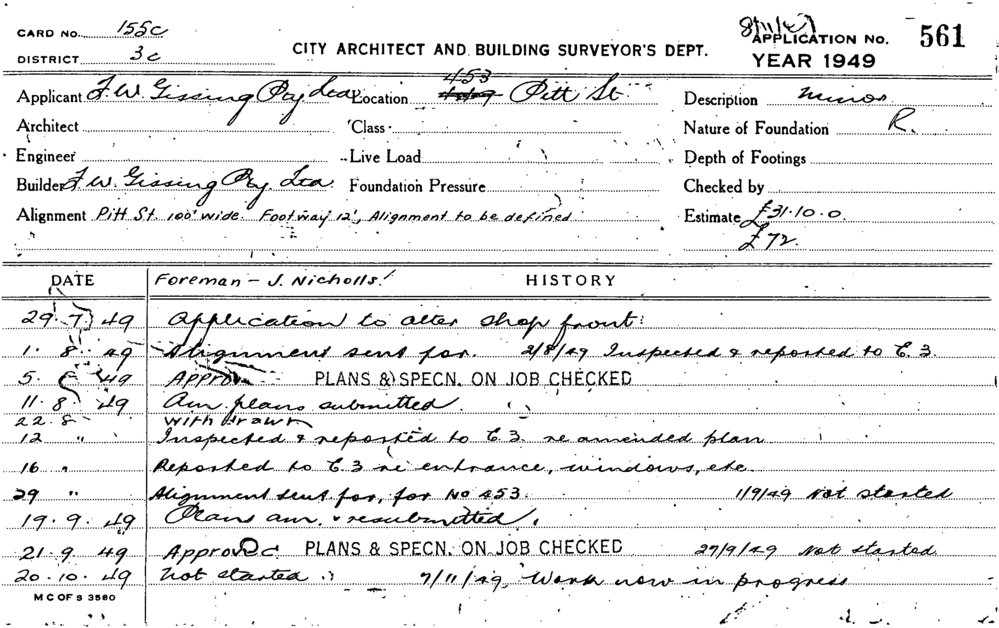 CARD NO. 155c
DISTRICT 3c
CITY ARCHITECT AND BUILDING SURVEYOR'S DEPT.
APPLICATION No. 561
YEAR 1949
Applicant F.W. Gissing Pty Ltd Location 453 Pitt St. Description minor
Architect Class Nature of Foundation R.
Engineer Live Load Depth of Footings
Builder F.W. Gissing Pty. Ltd Foundation Pressure Checked by
Alignment Pitt St. 100' wide. Footway 12', Alignment to be defined Estimate £31.10.0.
£72.
DATE Foreman – J. Nicholls. HISTORY
29. 7. 49 Application to alter shop front.
1. 8. 49 Alignment sent for. 2/8/49 Inspected & reported to C.3.
5. 8 49 Approv PLANS & SPECN. ON JOB CHECKED
11. 8. 49 Am. plans submitted.
22. 8 withdrawn
12 " Inspected & reported to C.3. re amended plan
16 " Reported to C.3 re entrance, windows, etc
29 " Alignment sent for, for No 453. 1/9/49 Not started
19. 9. 49 Plans am. & resubmitted.
21. 9. 49 Approved PLANS & SPECN. ON JOB CHECKED 27/9/49 Not started
20. 10. 49 Not started. 7/11/49, Work now in progress
M C OF S 3560